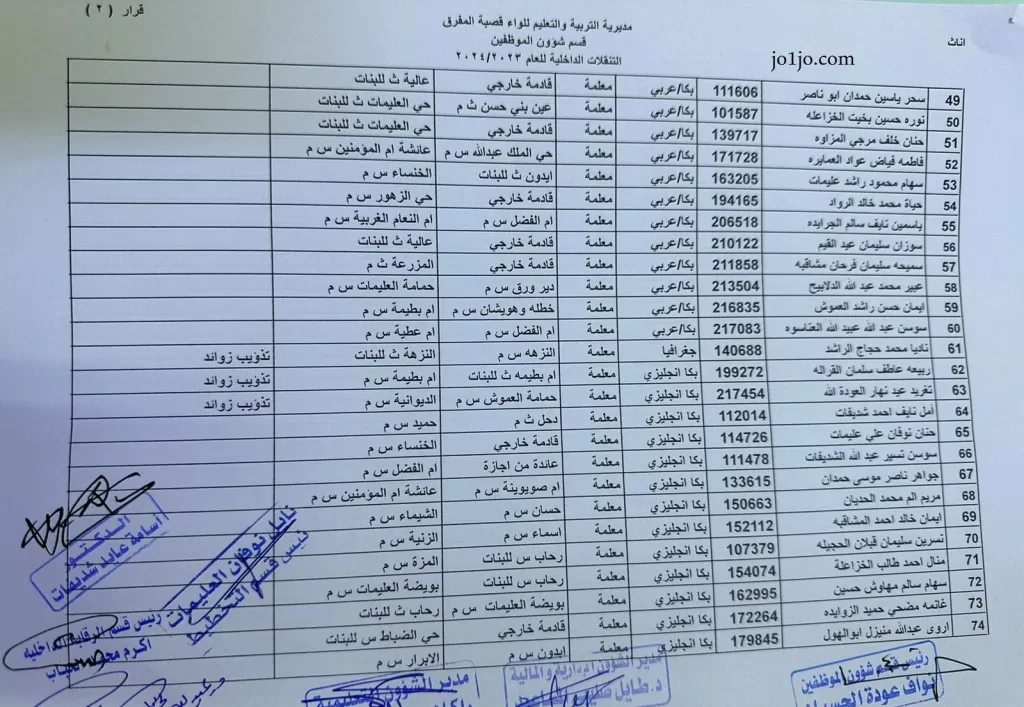 قرار ( ٢ )
مديرية التربية والتعليم للواء قصبة المفرق
قسم شؤون الموظفين
اناث
التنقلات الداخلية للعام ٢٠٢٤/٢٠٢٣
jo1jo.com
49 سحر ياسين حمدان ابو ناصر 111606 بكا/عربي معلمة قادمة خارجي عالية ث للبنات
50 نوره حسين بخيت الخزاعله 101587 بكا/عربي معلمة عين بني حسن ث م حي العليمات ث للبنات
51 حنان خلف مرجي المزاوه 139717 بكا/عربي معلمة قادمة خارجي حي العليمات ث للبنات
52 فاطمه فياض عواد العمايره 171728 بكا/عربي معلمة حي الملك عبدالله س م عائشة ام المؤمنين س م
53 سهام محمود راشد عليمات 163205 بكا/عربي معلمة ايدون ث للبنات الخنساء س م
54 حياة محمد خالد الرواد 194165 بكا/عربي معلمة قادمة خارجي حي الزهور س م
55 ياسمين نايف سالم الجرايده 206518 بكا/عربي معلمة ام الفضل س م ام النعام الغربية س م
56 سوزان سليمان عبد القيم 210122 بكا/عربي معلمة قادمة خارجي عالية ث للبنات
57 سميحه سليمان فرحان مشاقبه 211858 بكا/عربي معلمة قادمة خارجي المزرعة ث م
58 عبير محمد عبد الله الدلابيح 213504 بكا/عربي معلمة دير ورق س م حمامة العليمات س م
59 ايمان حسن راشد العموش 216835 بكا/عربي معلمة خطله وهويشان س م ام بطيمة س م
60 سوسن عبد الله عبيد الله العناسوه 217083 بكا/عربي معلمة ام الفضل س م ام عطية س م
61 ناديا محمد حجاج الراشد 140688 جغرافيا معلمة النزهه س م النزهة ث للبنات تذؤيب زوائد
62 ربيعه عاطف سلمان القراله 199272 بكا انجليزي معلمة ام بطيمه ث للبنات ام بطيمة س م تذؤيب زوائد
63 تغريد عيد نهار العودة الله 217454 بكا انجليزي معلمة حمامة العموش س م الديوانية س م تذؤيب زوائد
64 أمل نايف احمد شديفات 112014 بكا انجليزي معلمة دحل ث م حميد س م
65 حنان نوفان علي عليمات 114726 بكا انجليزي معلمة قادمة خارجي الخنساء س م
66 سوسن تسير عبد الله الشديفات 111478 بكا انجليزي معلمة عائدة من اجازة ام الفضل س م
67 جواهر ناصر موسى حمدان 133615 بكا انجليزي معلمة ام صويوينة س م عائشة ام المؤمنين س م
68 مريم الم محمد الحديان 150663 بكا انجليزي معلمة حسان س م الشيماء س م
69 ايمان خالد احمد المشاقبه 152112 بكا انجليزي معلمة اسماء س م الزنية س م
70 نسرين سليمان قبلان الحجيله 107379 بكا انجليزي معلمة رحاب س للبنات المزة س م
71 منال احمد طالب الخزاعلة 154074 بكا انجليزي معلمة رحاب س للبنات بويضة العليمات س م
72 سهام سالم مهاوش حسين 162995 بكا انجليزي معلمة بويضة العليمات س م رحاب ث للبنات
73 غانمه مضحي حميد الزوايده 172264 بكا انجليزي معلمة قادمة خارجي حي الضباط س للبنات
74 اروى عبدالله منيزل ابوالهول 179845 بكا انجليزي معلمة ايدون س م الابرار س م
الدكتور
اسامة عايد شديفات
نايل نوفان العليمات
رئيس قسم التخطيط
رئيس قسم الرقابة الداخلية
اكرم
مدير الشؤون التعليمية
مدير الشؤون الادارية والمالية
د. طايل
رئيس قسم شؤون الموظفين
نواف عودة